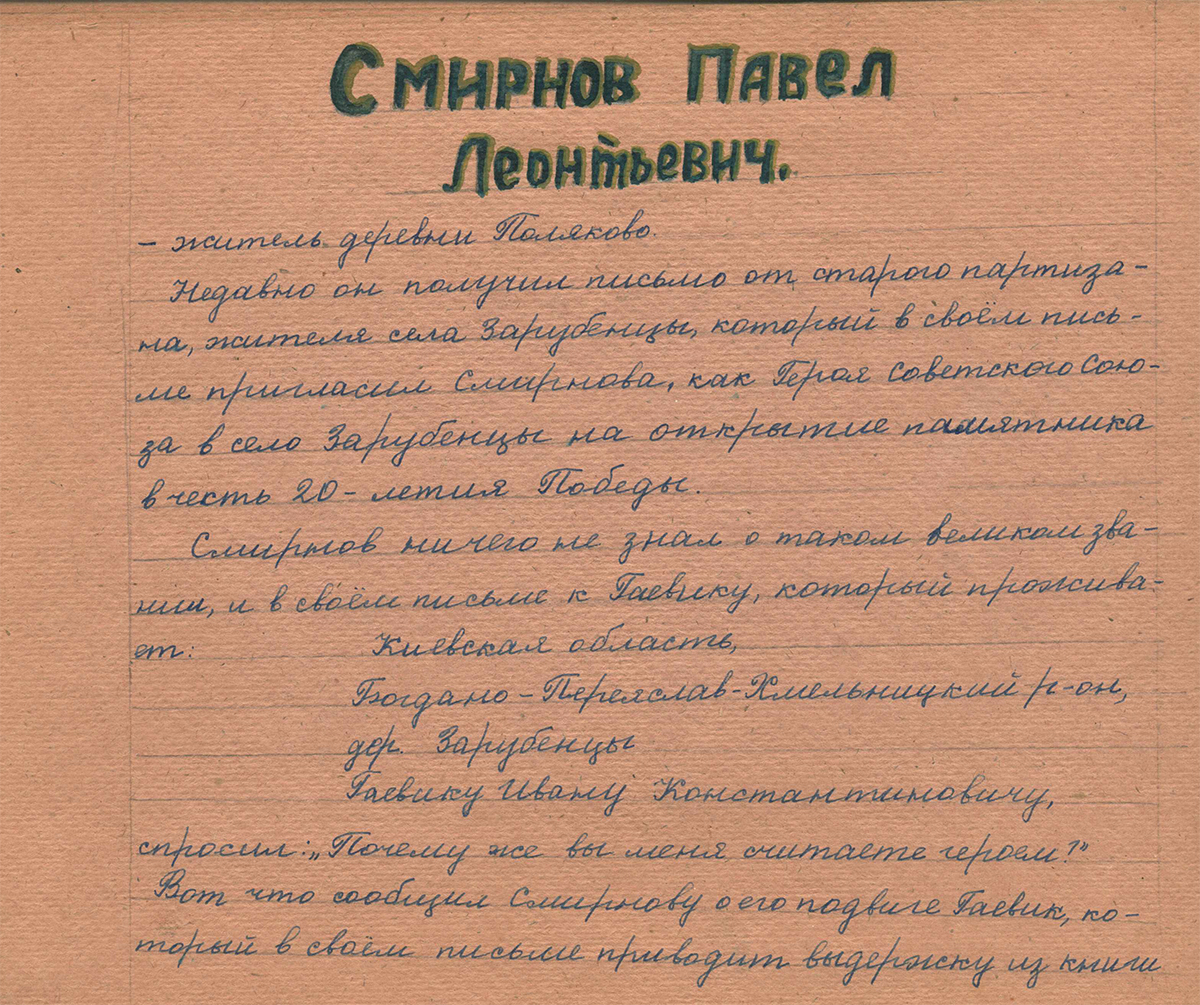 Смирнов Павел
Леонтьевич.
– житель деревни Поляково.
Недавно он получил письмо от старого партиза-
на, жителя села Зарубенцы, который в своём пись-
ме пригласил Смирнова, как Героя Советского Сою-
за в село Зарубенцы на открытие памятника
в честь 20-летия Победы.
Смирнов ничего не знал о таком великом зва-
нии, и в своём письме к Гаевику, который прожива-
ет: Киевская область,
Богдано-Переяслав-Хмельницкий р-он,
дер. Зарубенцы
Гаевику Ивану Константиновичу,
спросил: „Почему же вы меня считаете героем?"
Вот что сообщил Смирнову о его подвиге Гаевик, ко-
торый в своём письме приводит выдержку из книги